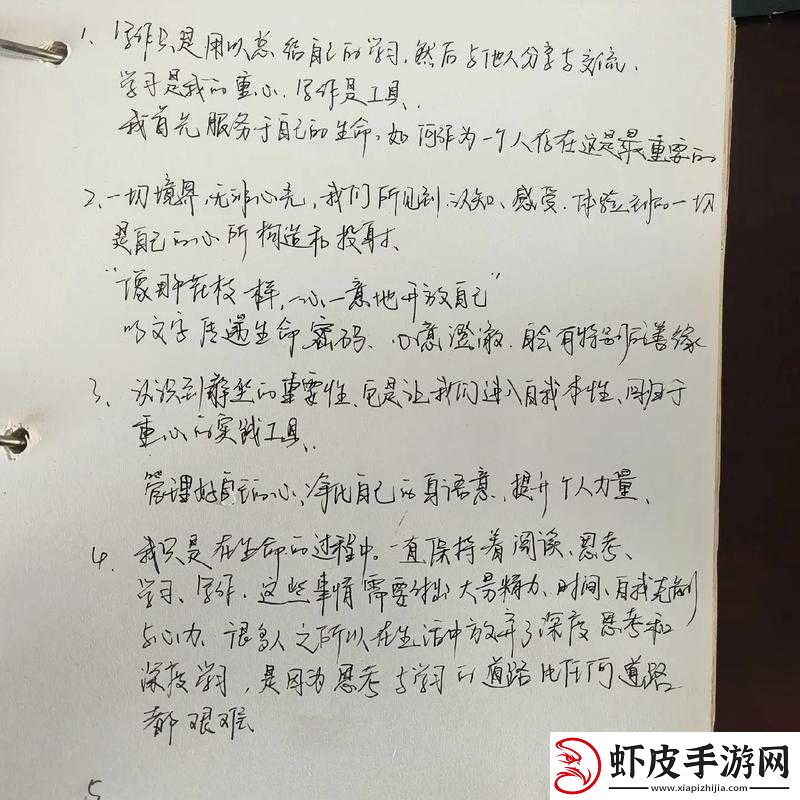 1、写作只是用以总结自己的学习，然后与他人分享与交流、
学习是我的重心、写作是工具、
我首先服务于自己的生命，如何作为一个人存在这是最重要的
2、一切境界，无非心光，我们所见到、认知、感受、体验到的一切
是自己的心所构造和投射、
"像那花枝一样，一心一意地开放自己"
以文字传递生命密码、心意澄澈、自会有特别的善缘
3、认识到静坐的重要性、它是让我们进入自我本性、回归于
重心的实践工具、
管理好自己的心、净化自己的身语意、提升个人力量、
4、我只是在生命的过程中、一直保持着阅读、思考、
学习、写作、这些事情需要付出大量精力、时间、自我克制
与心力、很多人之所以在生活中放弃了深度思考和
深度学习，是因为思考与学习的道路比任何道路
都艰难
5
虾皮手游网
www.xiapizhijia.com